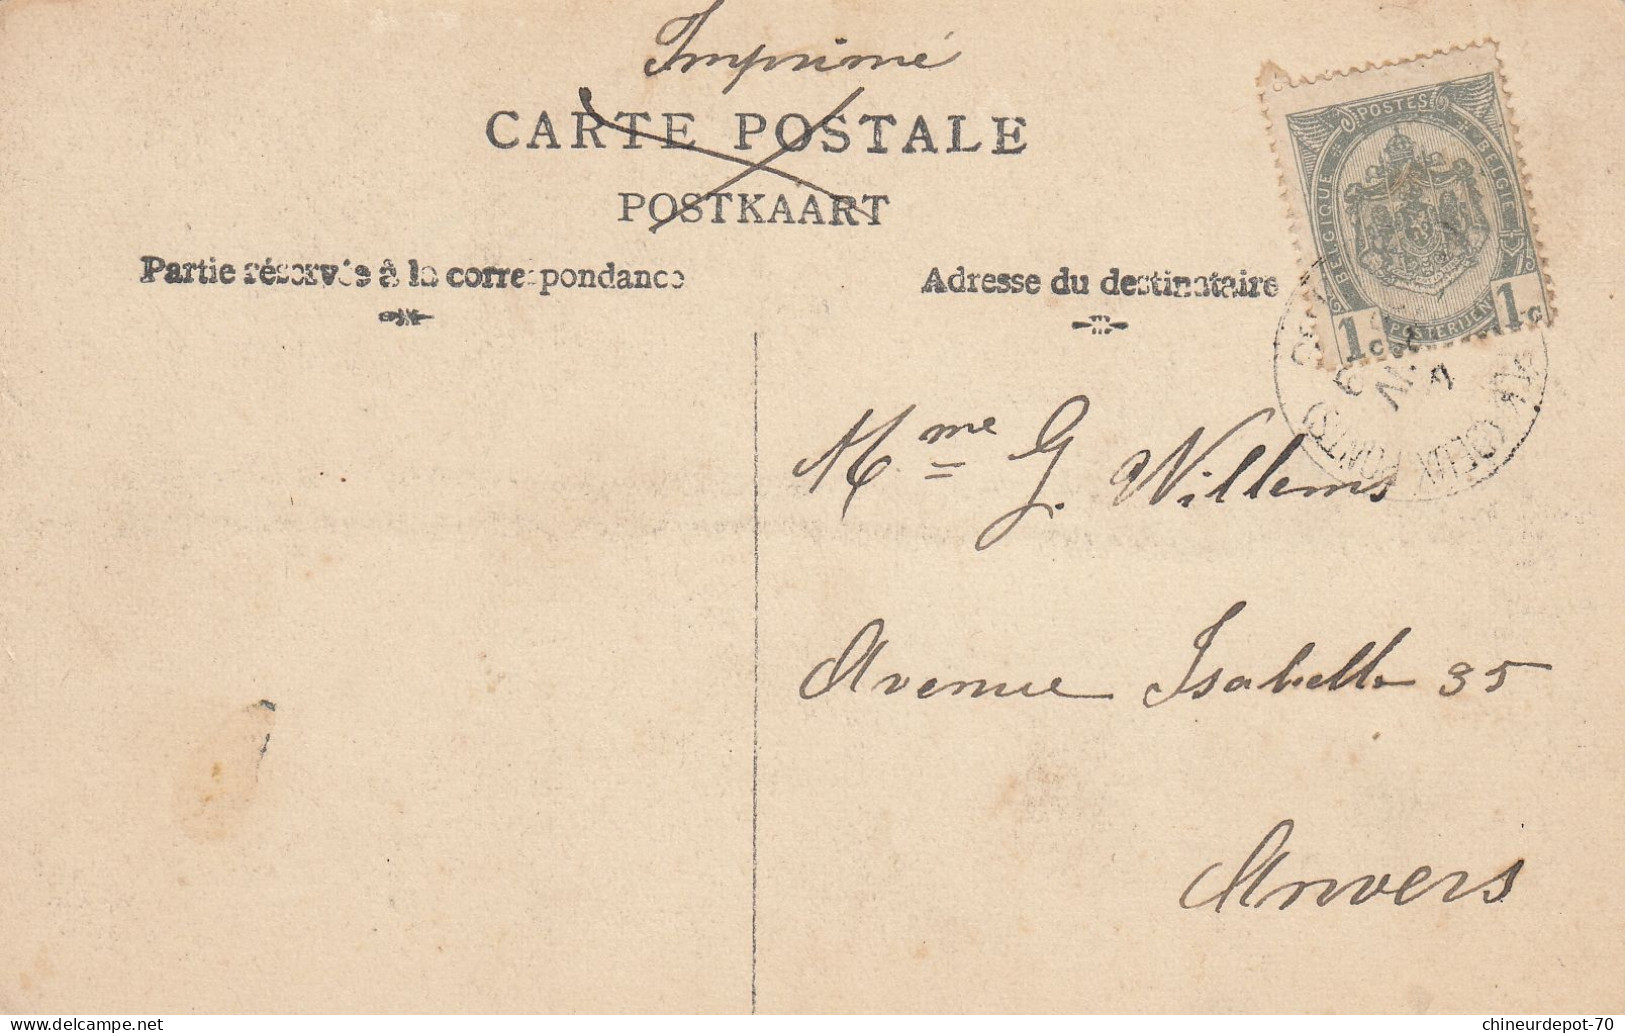 Imprimé
CARTE POSTALE
POSTKAART
Partie réservée à la correspondance
Adresse du destinataire
POSTES
BELGIQUE
BELGIE
POSTERIJEN
1c
1c
Mme G. Willems
Avenue Isabelle 35
Anvers
delcampe.net
chineurdepot-70